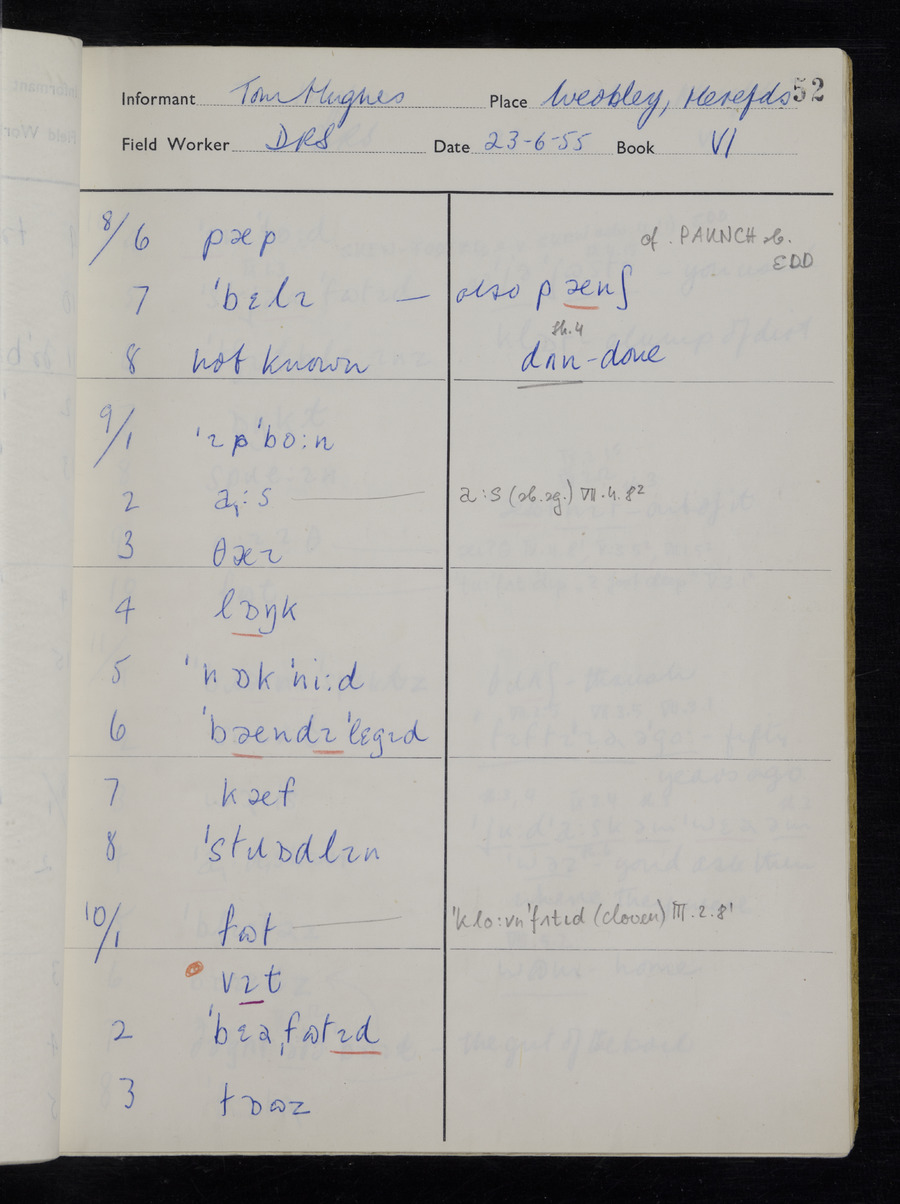 52
Informant Tom Hughes Place Weobley, Herefds
Field Worker DRS Date 23-6-55 Book VI
8/6 pæp cf. PAUNCH sb.
EDD
7 ˈbɛlɪ — also pænʃ
sh.4
8 not known dʌn - done
9/1 ˈɪpˈbo:n
2 a:s a:s (sb.sg.) VII.4.8²
3 θæɪ
4 lɒŋk
5 ˈnɒkˈni:d
6 ˈbændɪˈlɛgɪd
7 kæf
8 ˈstɹɒdlɪn
10/1 fɷt ˈklo:vnˈfɪtɪd (cloven) III.2.8¹
vɪt
2 ˈbɛəˌfɷtɪd
3 tɒɷz